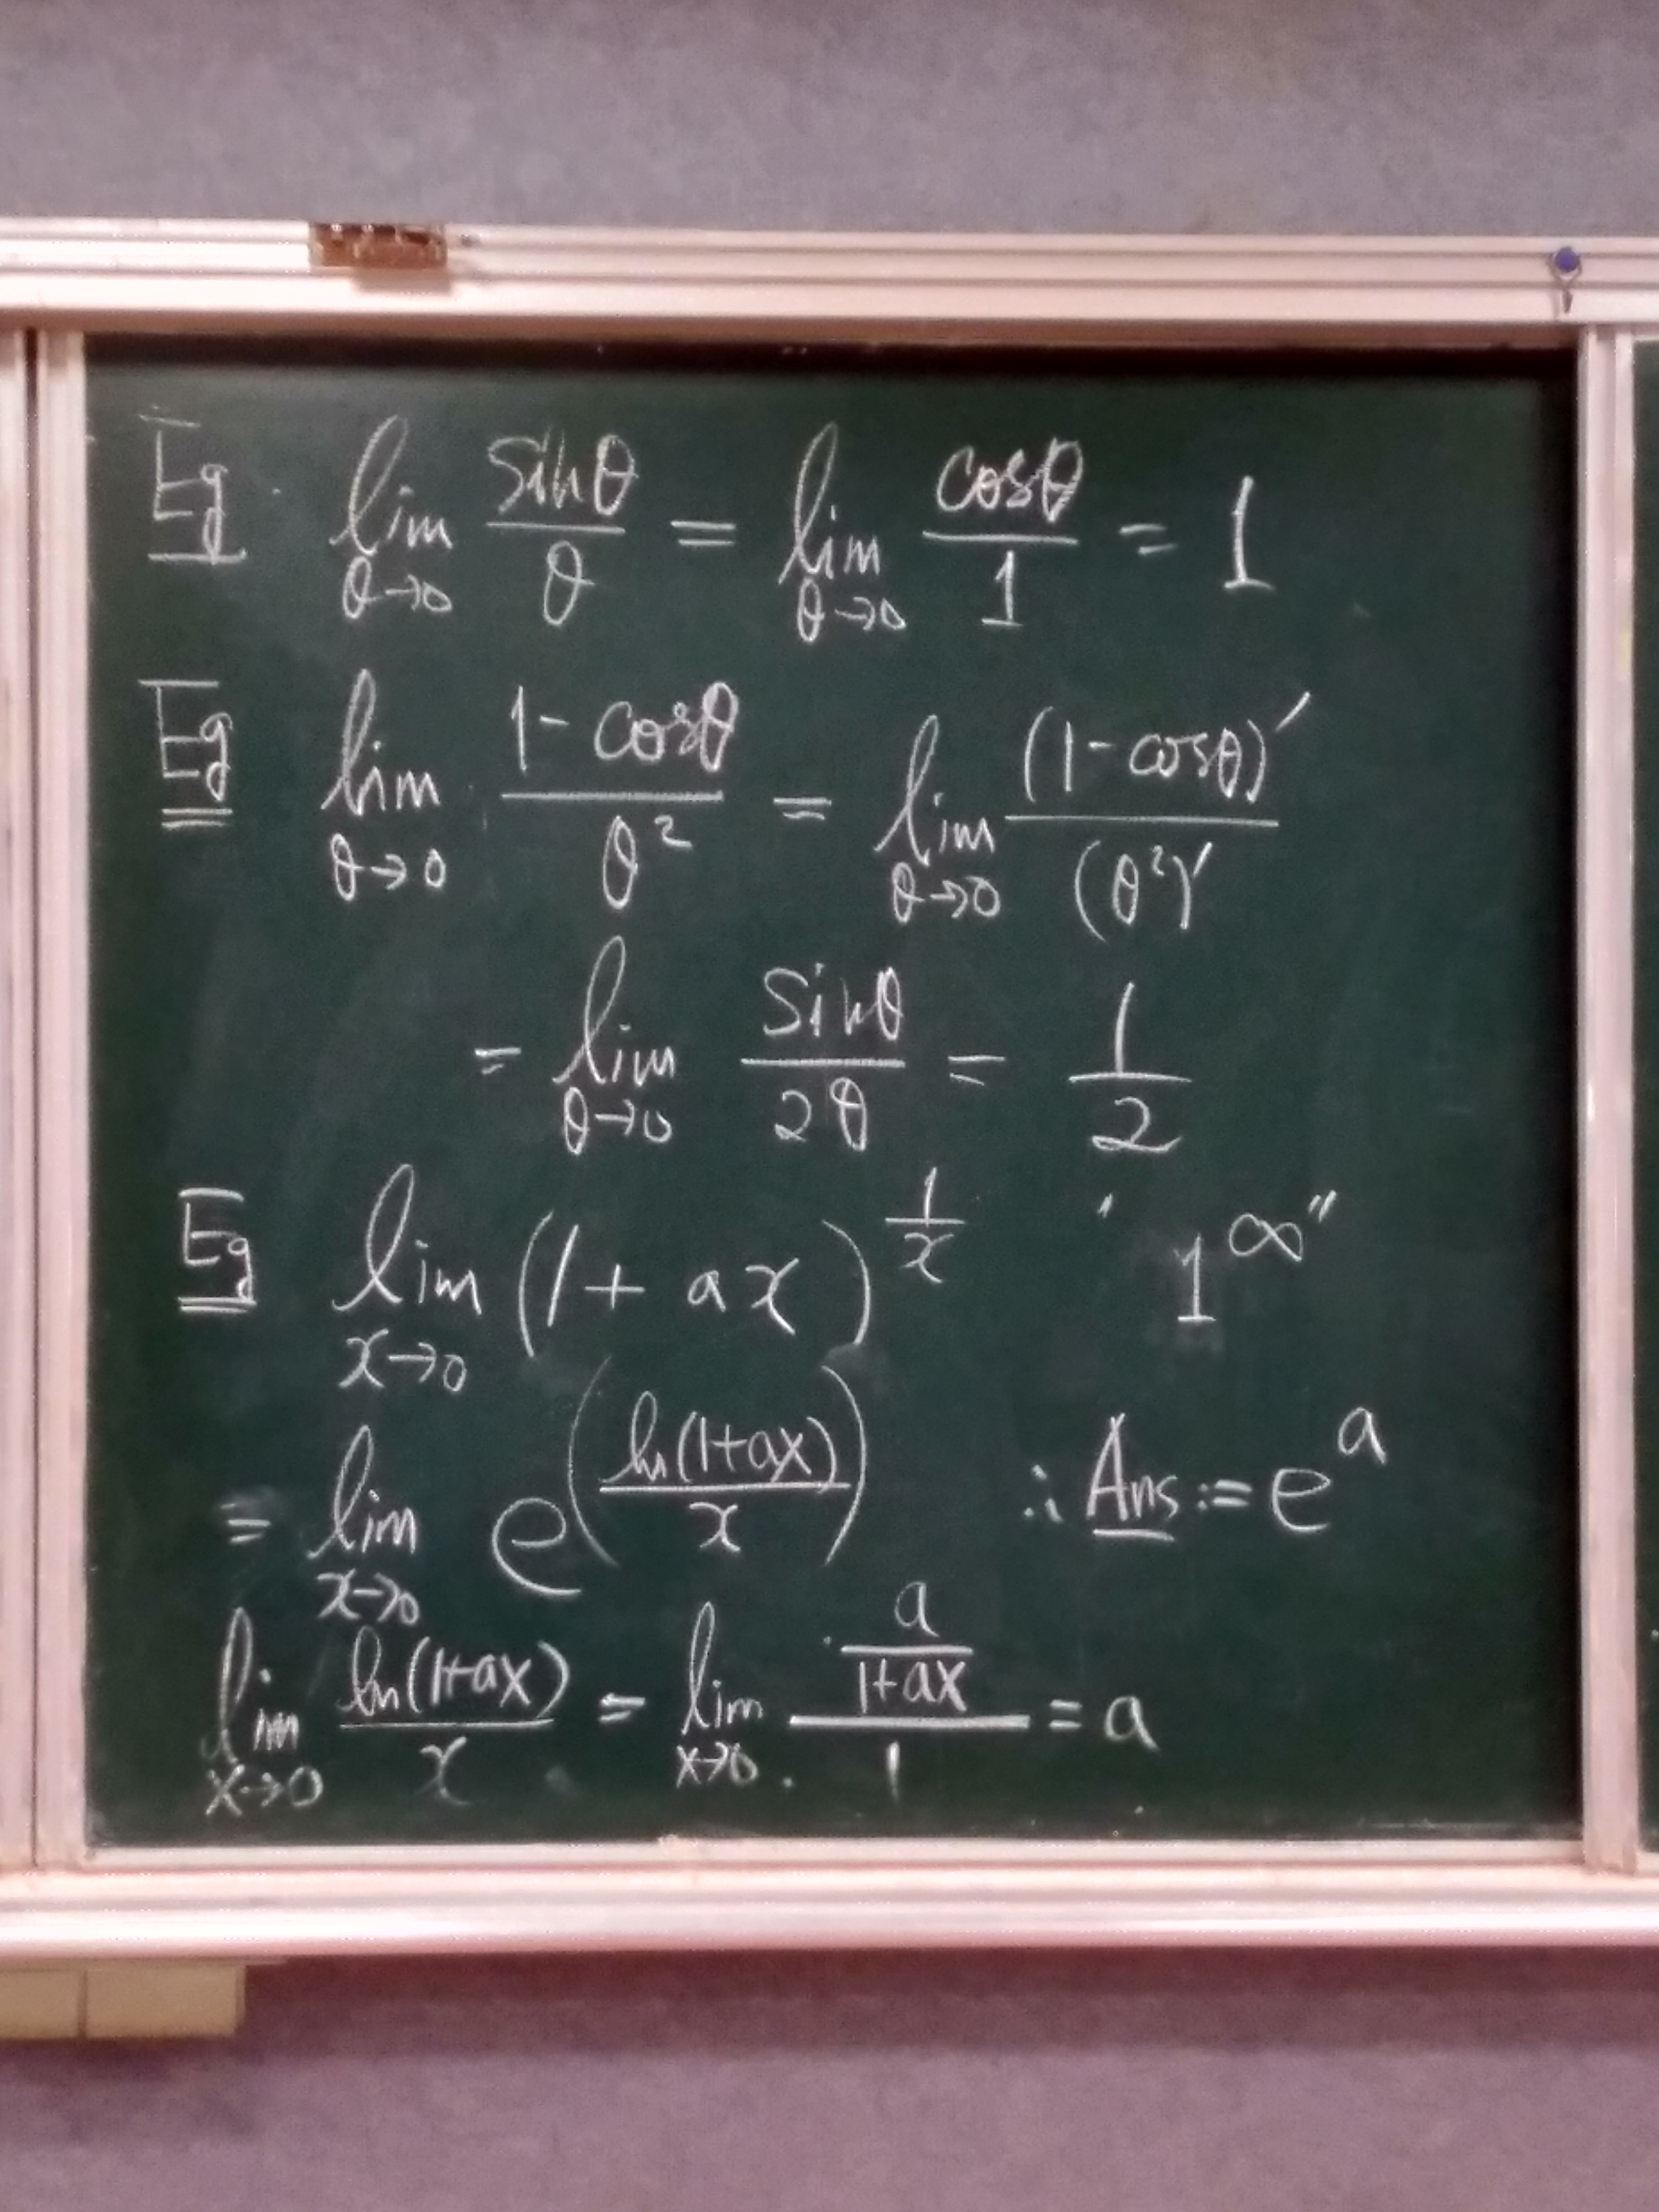 Eg. lim_{θ→0} sinθ/θ = lim_{θ→0} cosθ/1 = 1
Eg lim_{θ→0} (1-cosθ)/θ² = lim_{θ→0} (1-cosθ)′/(θ²)′
= lim_{θ→0} sinθ/2θ = 1/2
Eg lim_{x→0} (1+ax)^{1/x} ‘1^∞”
= lim_{x→0} e^{(ln(1+ax)/x)} ∴ Ans := e^a
lim_{x→0} ln(1+ax)/x = lim_{x→0} (a/(1+ax))/1 = a